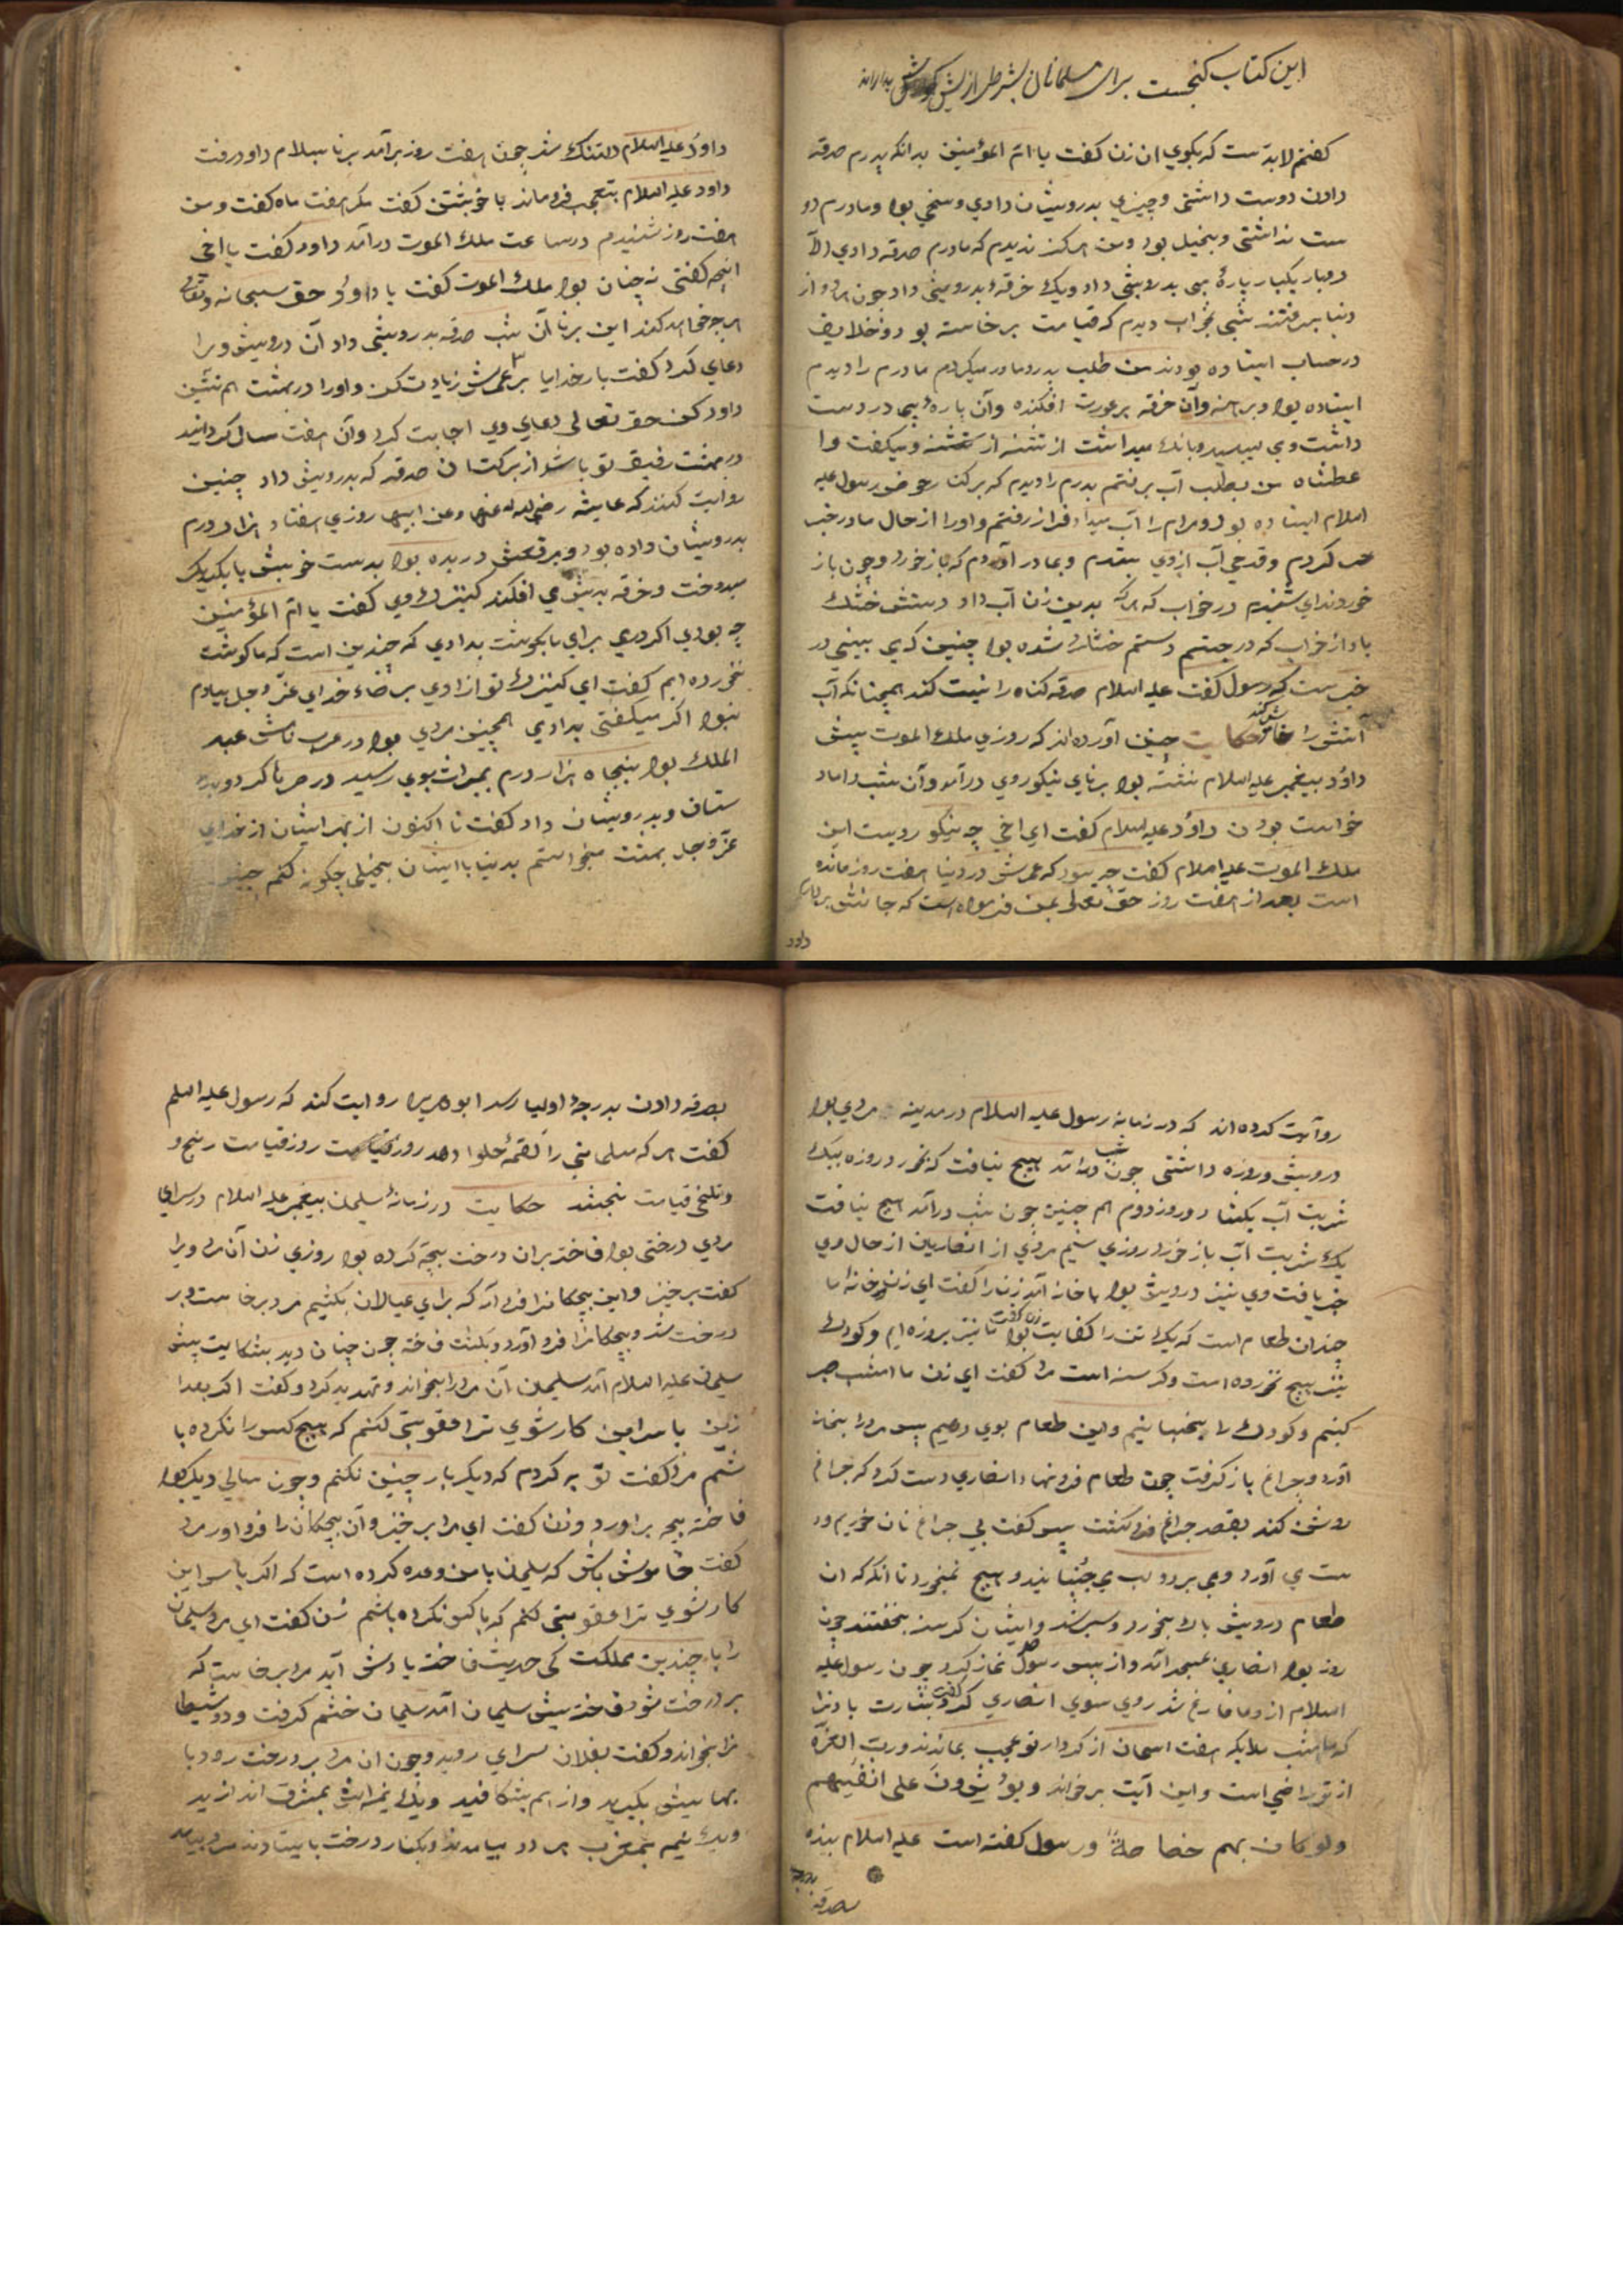 این کتاب گنجست برای مسلمانان بشرطی از
گفتم لابدست که بگوی ان زن گفت یا ام المؤمنین بدانکه پدرم صدقه
دادن دوست داشتی و چیزی بدرویشان دادی و سخی بود و مادرم دو
ست نداشتی و بخیل بود و من هرکز ندیدم که مادرم صدقه دادی الّا
دوبار یکبار پارهٔ پیی بدرویشی داد و یک خرقه بدرویشی داد چون هر دو از
دنیا برفتند شبی بخواب دیدم که قیامت برخاسته بود و خلایق
در حساب ایستاده بودند من طلب پدر و مادر میکردم مادرم را دیدم
ایستاده بود و برهنه و آن خرقه بر عورت افکنده و آن پارهٔ پیی در دست
داشت و می لیسید و بانک میداشت از تشنه و میکفت وا
عطشاه من بطلب آب برفتم پدرم را دیدم که بر کنار حوض رسول علیه
السلام ایستاده بود و مردم را آب میداد فراز رفتم و او را از حال مادر خبر
کردم و قدحی آب از وی ستدم و بمادر آوردم که باز خورد و چون باز
خورد ندای شنیدم در خواب که هرکه بدین زن آب داد دستش خشک
باد از خواب که در جستم دستم خشک شده بود چنین که می بینی در
خبرست که رسول گفت علیه السلام صدقه کناه را نیست کند همچنانکه آب
آتش را حکایت چنین آورده اند که روزی ملک الموت پیش
داود پیغمبر علیه السلام نشسته بود برنای نیکو روی درآمد و آن شب داماد
خواست بودن داود علیه السلام گفت ای اخی چه نیکو رویست این
ملک الموت علیه السلام کفت چه سود که عمرش در دنیا هفت روز مانده
است بعد از هفت روز حق تعالی بمن فرموده است که جانش بردارم
داود
داود علیه السلام دلتنک شد چون هفت روز برآمد برنا بسلام داود رفت
داود علیه السلام بتعجب فرو ماند با خویشتن کفت مکر هفت ماه کفت و من
هفت روز شنیدم در ساعت ملک الموت درآمد داود کفت یا اخی
انچه کفتی نه چنان بود ملک الموت کفت یا داود حق سبحانه و تعالی
هر چه خواهد کند این برنا آن شب صدقه بدرویشی داد آن درویش ویرا
دعای کرد کفت بار خدایا بر عمرش زیادت کن و او را در بهشت هم نشین
داود کن حق تعالی دعای وی اجابت کرد و آن هفت سال کردانید
در بهشت رفیق تو باشد از برکت آن صدقه که بدرویش داد چنین
روایت کنند که عایشه رضی الله عنها و عن ابیها روزی هفتاد هزار درم
بدرویشان داده بود و برقعش دریده بود بدست خویش با یکدیکر
میدوخت و خرقه بدیش می افکند کنیزک وی کفت یا ام المؤمنین
چه بودی اکر درمی برای ما بکوشت بدادی که چندین است که ما کوشت
نخورده ایم کفت ای کنیزک تو آزادی برضاء خدای عز و جل بیادم
نبود اکر میکفتی بدادی همچنین مردی بود در عرب نامش عبد
الملک بود پنجاه هزار درم بمیراث بوی رسید در صرها کرد و بدو
ستان و بدرویشان داد کفت تا اکنون از بهر ایشان از خدای
عز و جل بهشت میخواستم بدنیا با ایشان بخیلی چکونه کنم
روایت کرده اند که در زمانهٔ رسول علیه السلام در مدینه مردی بود
درویش و روزه داشتی چون شب درآمد هیچ نیافت که بخورد روزه بیک
شربت آب بکشاد و روز دوم هم چنین چون شب درآمد هیچ نیافت
یک شربت آب باز خورد روزی سیم مردی از انصاریان از حال وی
خبر یافت وی نیز درویش بود با خانه آمد زنرا کفت ای زن در خانهٔ ما
چندان طعام است که یک تن را کفایت بود زن کفت ما نیز بروزه ایم و کودک
نیز هیچ نخورده است و کرسنه است مرد کفت ای زن ما امشب صبر
کنیم و کودک را بخسبانیم و این طعام بوی دهیم پس مرد را بخانه
آورد و چراغ باز کرفت چون طعام فرو نهاد انصاری دست کرد که چراغ
روشن کند بقصد چراغ فرو کشت پس کفت بی چراغ نان خوریم و د
ست می آورد و می برد و لب می جنبانید و هیچ نمیخورد تا آنکه که ان
طعام درویش بالا بخورد و سیر شد و ایشان کرسنه بخفتند چون
روز بود انصاری بمسجد آمد و از پس رسول نماز کرد چون رسول علیه
السلام از دعا فارغ شد روی سوی انصاری کرد کفت بشارت باد ترا
که امشب ملایکه هفت اسمان از کردار تو عجب بماندند و ربّ العزّة
از تو راضی است و این آیت برخواند ویؤثرون علی انفسهم
ولو کان بهم خصاصةً و رسول کفته است علیه السلام بنده
بصدقه
بدرجه
بصدقه دادن بدرجهٔ اولیا رسد ابو هریره روایت کند که رسول علیه السلم
کفت هر که مسلمانی را لقمهٔ حلوا دهد روز قیامت رنج و
و تلخی قیامت نچشد حکایت در زمانهٔ سلیمان پیغمبر علیه السلام در سرای
مردی درختی بود فاخته بران درخت بچه کرده بود روزی زن آن مرد ویرا
کفت برخیز و این بچکانرا فرود آر که برای عیالان بکشیم مرد برخاست و بر
درخت شد و بچکانرا فرود آورد و بکشت فاخته چون چنان دید بشکایت پیش
سلیمان علیه السلام آمد سلیمان آن مرد را بخواند و تهدید کرد و کفت اکر بعد از
زین با سر این کار شوی ترا عقوبتی کنم که هیچ کس را نکرده با
شم مرد کفت توبه کردم که دیکر بار چنین نکنم و چون سالی دیکر بود
فاخته بچه براورد و زن کفت ای مرد برخیز و آن بچکان را فرود آور مرد
کفت خاموش باش که سلیمان با من وعده کرده است که اکر با سر این
کار شوی ترا عقوبتی کنم که با کس نکرده باشم زن کفت ای مرد سلیمان
را با چندین مملکت کی حدیث فاخته یادش آید مرد برخاست که
بر درخت شود فاخته پیش سلیمان آمد سلیمان خشم کرفت و دو شیطا
نرا بخواند و کفت بفلان سرای روید و چون ان مرد بر درخت رود پا
بهایش بکیرید و از هم بشکافید و یک نیمه اش بمشرق اندازید
و یک نیمه بمغرب هر دو بیامدند و بکنار درخت بایستادند مرد بیامد